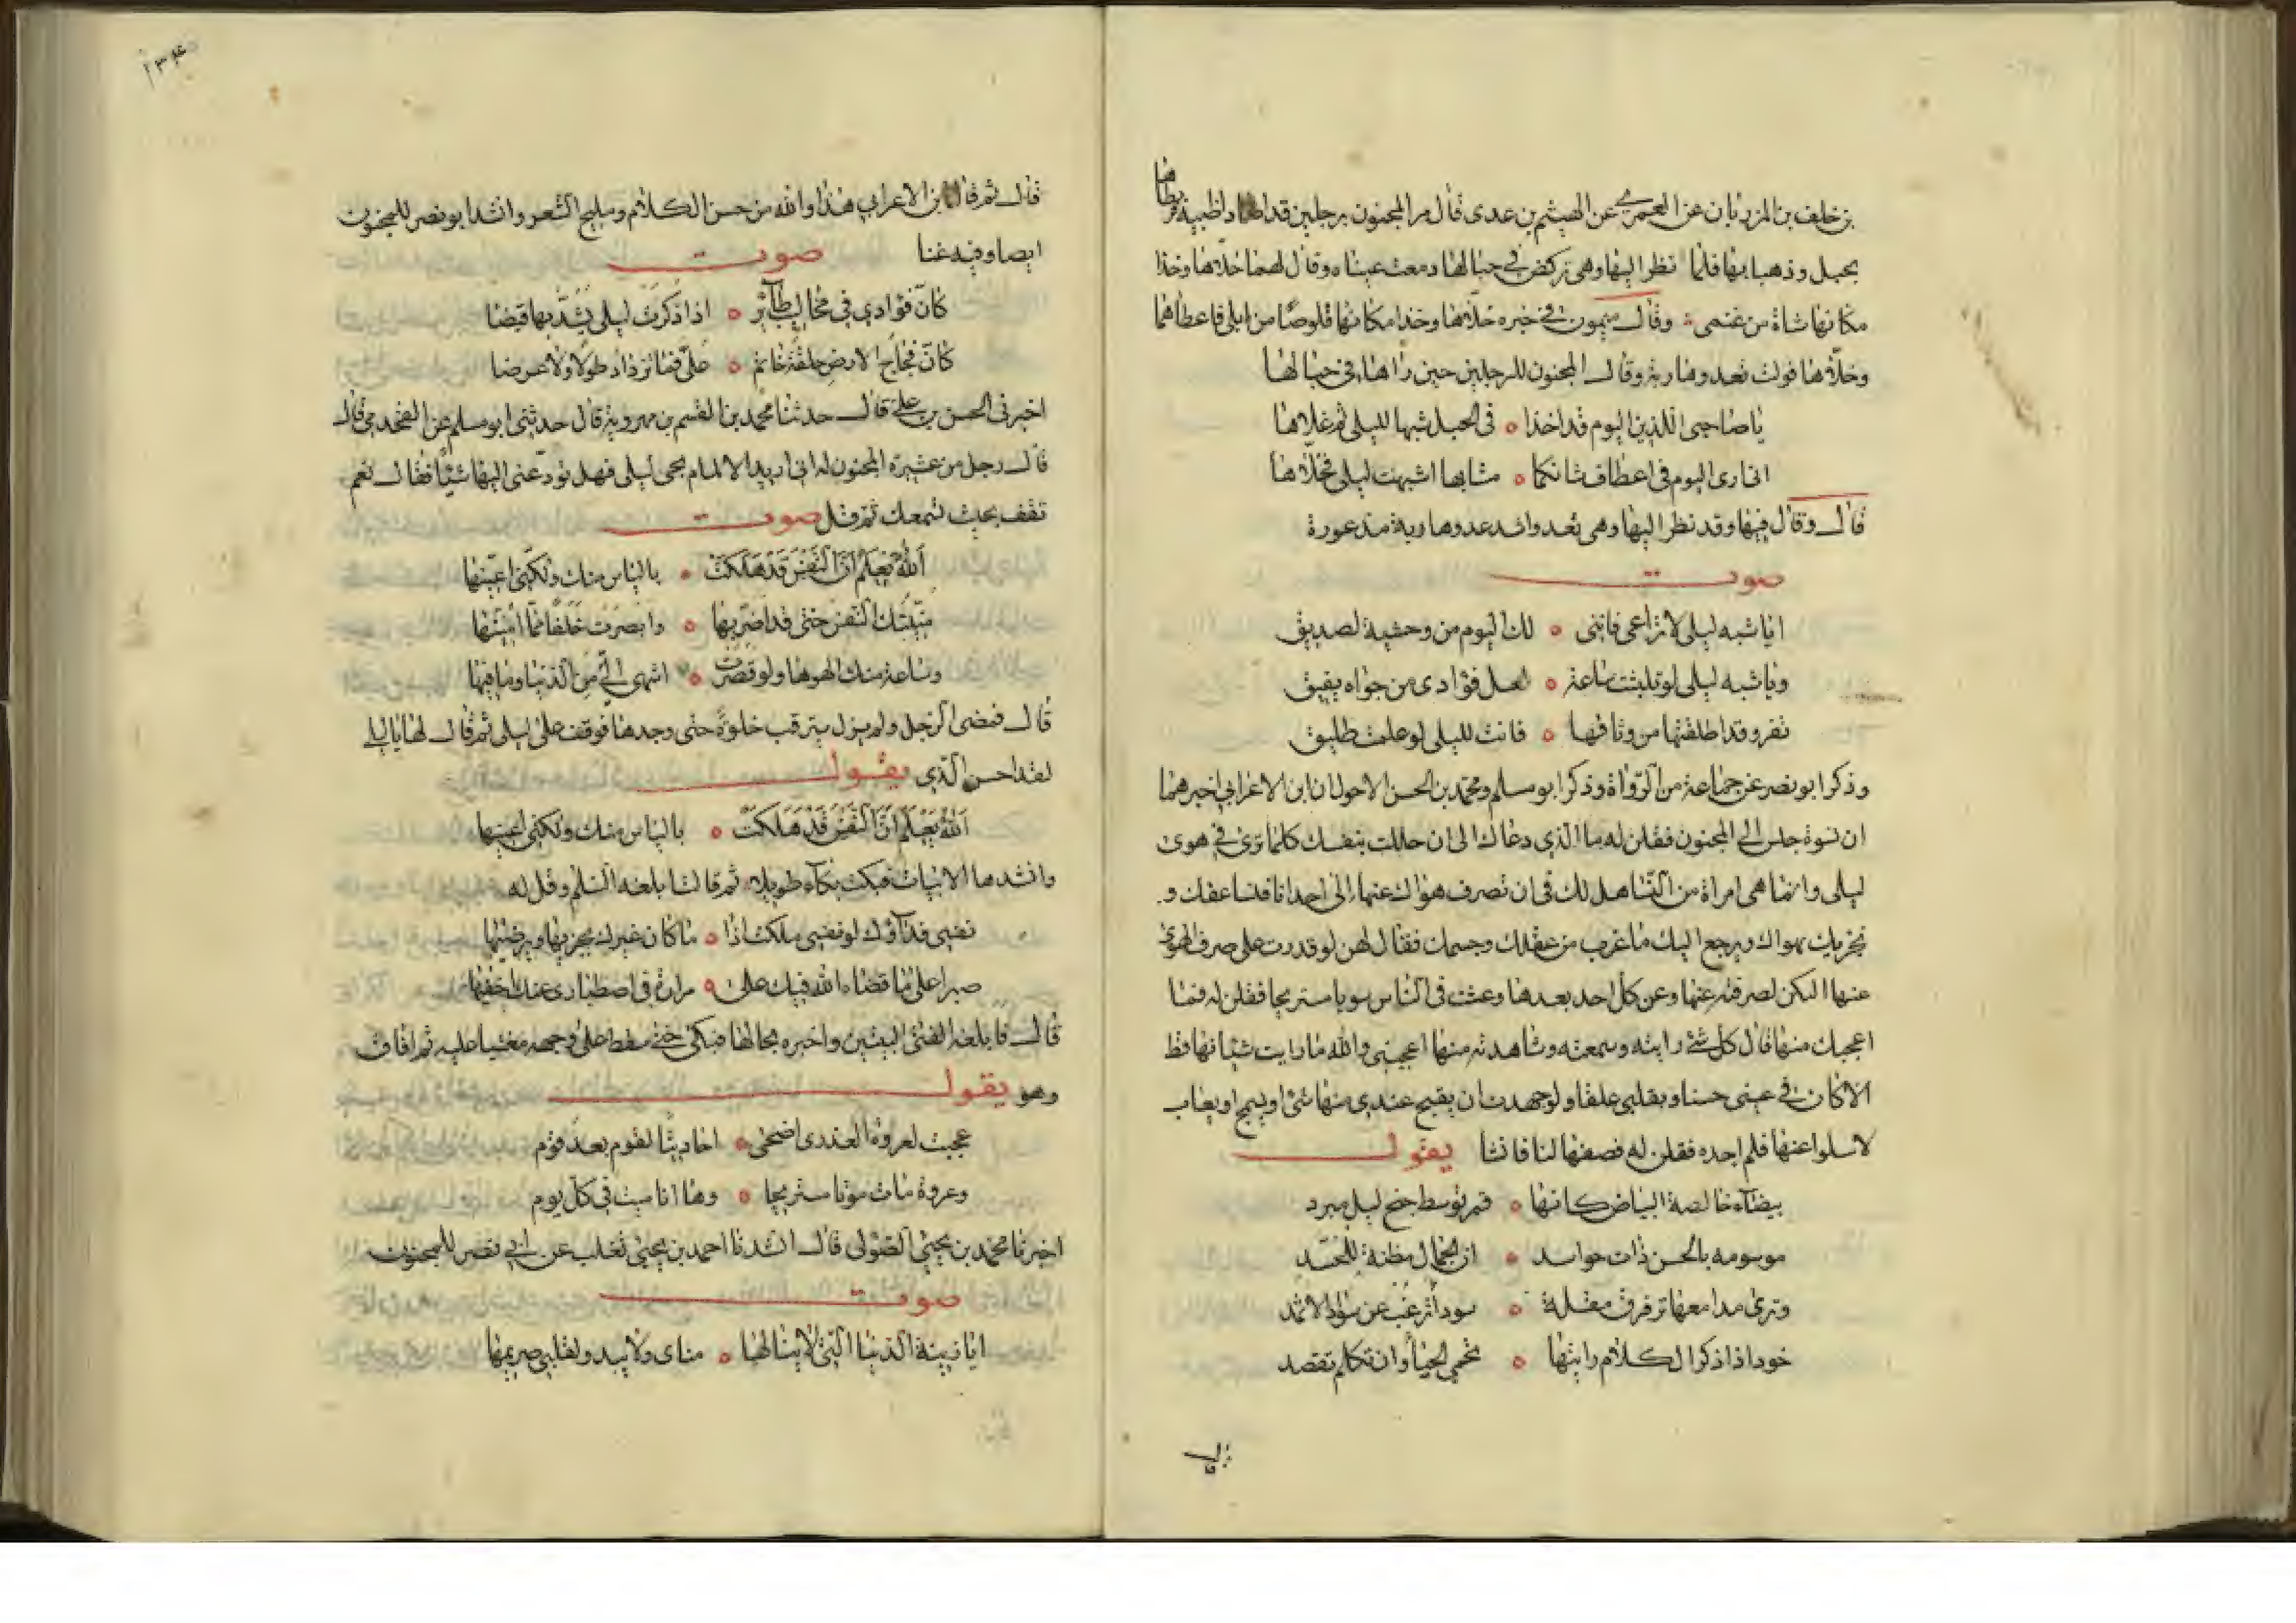 بن خلف بن المرزبان عن العمري عن الهيثم بن عدى قال مر المجنون برجلين قد اصطادا ظبية فربطاها
بحبل وذهبا بها فلما نظر اليها وهى تركض في حبالها دمعت عيناه وقال لهما خلاها وخذا
مكانها شاة من غنمى وقال ميمون في خبره خلاها وخذا مكانها قلوصًا من ابلى فاعطاهما
وخلاها فولت تعدو هاربة وقال المجنون للرجلين حين راها في حبالها
يا صاحبى اللذين اليوم قد اخذا ٥ فى الحبل شبها لليلى ثم غلاها
انى ارى اليوم فى اعطاف شاتكما ٥ مشابها اشبهت ليلى فخلاها
قال وقال فيها وقد نظر اليها وهى تعدو اشد عدوها هاربة مذعورة
صوت
ايا شبه ليلى لا تراعى فاننى ٥ لك اليوم من وحشية لصديق
ويا شبه ليلى لو تلبثت ساعة ٥ لعل فؤادى من جواه يفيق
تفر وقد اطلقتها من وثاقها ٥ فانت لليلى لو علمت طليق
وذكر ابو نصر عن جماعة من الرواة وذكر ابو مسلم ومحمد بن الحسن الاحول ان ابن الاعرابي اخبرهما
ان نسوة جلسن الى المجنون فقلن له ما الذي دعاك الى ان حللت بنفسك كلما ترى في هوى
ليلى وانما هى امراة من النسا هل لك فى ان تصرف هواك عنها الى احدانا فنساعفك و
نجزيك بهواك ويرجع اليك ما غرب من عقلك وجسمك فقال لهن لو قدرت على صرف الهوى
عنها اليكن لصرفته عنها وعن كل احد بعدها وعشت فى الناس سويا مستريحا فقلن له فما
اعجبك منها قال كل شئ رايته وسمعته وشاهدته منها اعجبنى والله ما رايت شيا منها قط
الا كان في عينى حسنا وبقلبى علقا ولو جهدت ان يقبح عندى منها شئ او يسمج او يعاب
لاسلوا عنها فلم اجده فقلن له فصفها لنا فانشا يقول
بيضآء خالصة البياض كانها ٥ قمر توسط جنح ليل مبرد
موسومه بالحسن ذات حواسد ٥ ان الجمال مظنة للحسد
وترى مدامعها ترقرق مقلة ٥ سودآ ترغب عن سواد الاثمد
خود اذا ذكر الكلام رايتها ٥ تحمى الحيا وان تكلم تقصد
قال
١٣٤
قال ثم قال ابن الاعرابي هذا والله من حسن الكلام ومليح الشعر وانشد ابو نصر للمجنون
ايضا وفيه غنا صوت
كانّ فؤادي في مخاليب طآئر ٥ اذا ذكرت ليلى يشدّ بها قبضا
كانّ فجاج الارض حلقة خاتم ٥ علىّ فما تزداد طولا ولا عرضا
اخبرنى الحسن بن على قال حدثنا محمد بن القسم بن مهرويه قال حدثنى ابو مسلم عن القحذمى قال
قال رجل من عشيرة المجنون له انى اريد الالمام بحى ليلى فهل تودّعنى اليها شيئًا فقال نعم
تقف بحيث تسمعك ثم قل صوت
اللهُ يَعلم انّ النّفسَ قد هلكت ٥ بالياس منك ولكنى اعنيها
منيتك النفس حتى قد اضرّ بها ٥ وابصرت خلفًا مما امنيها
وساعة منك الهوها ولو قصرت ٥ اشهى الىّ من الدنيا وما فيها
قال فمضى الرجل ولم يزل يترقب خلوةً حتى وجدها فوقف على ليلى ثم قال لها يا ليلى
لقد احسن الّذي يقول
اللهُ يَعلم انّ النّفسَ قد هلكت ٥ بالياس منك ولكنى اعنيها
وانشدها الابيات فبكت بكآء طويلا ثم قالت ابلغه السلم وقل له
نفسى فدآؤك لو نفسى ملكت اذا ٥ ما كان غيرك يجزيها ويرضيها
صبرا على ما قضاه الله فيك على ٥ مرارة فى اصطبارى عنك اخفيها
قال فابلغه الفتى البيتين واخبره بحالها فبكى حتى سقط على وجهه مغشيا عليه ثم افاق
وهو يقول
عجبت لعروة العذرى اضحى ٥ احاديثا لقوم بعد قوم
وعروة مات موتا مستريحا ٥ وها انا ميت في كلّ يوم
اخبرنا محمد بن يحيى الصّولى قال انشدنا احمد بن يحيى ثعلب عن ابي نصر للمجنون
صوت
ايا زينة الدنيا الّتى لا ينالها ٥ مناى ولا يبدو لقلبى صريمها